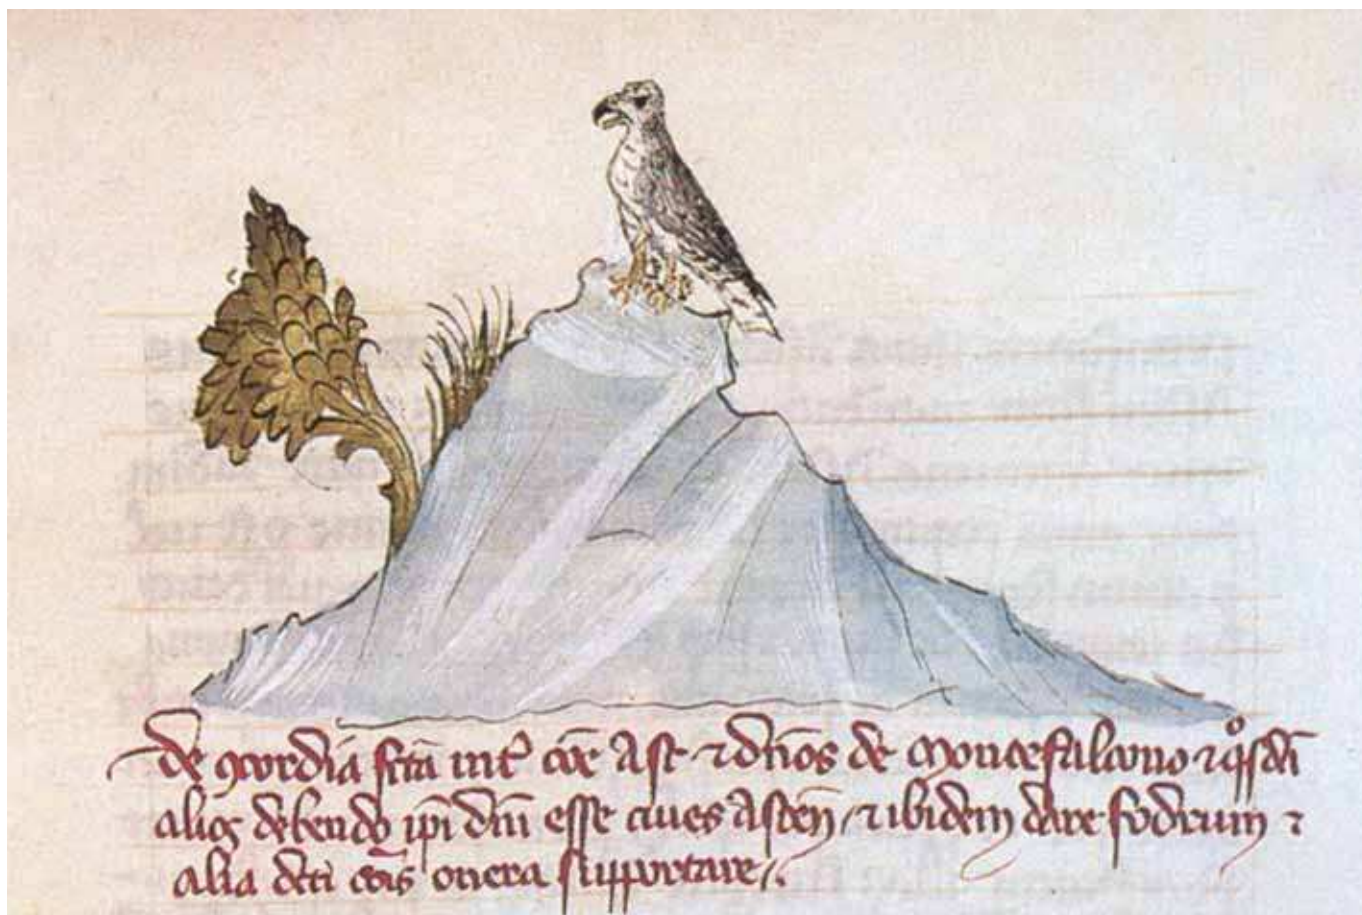 de ꝯcordiā fc̄tā int̄ cōe Ast̄ ⁊ dn̄os de Moncefalcono ⁊ q̊sdā
alios debendo ip̄i dn̄i esse ciues Asten̄ / ⁊ ibidem dare fodrum ⁊
alia dc̄ti cōis onera supportare /.